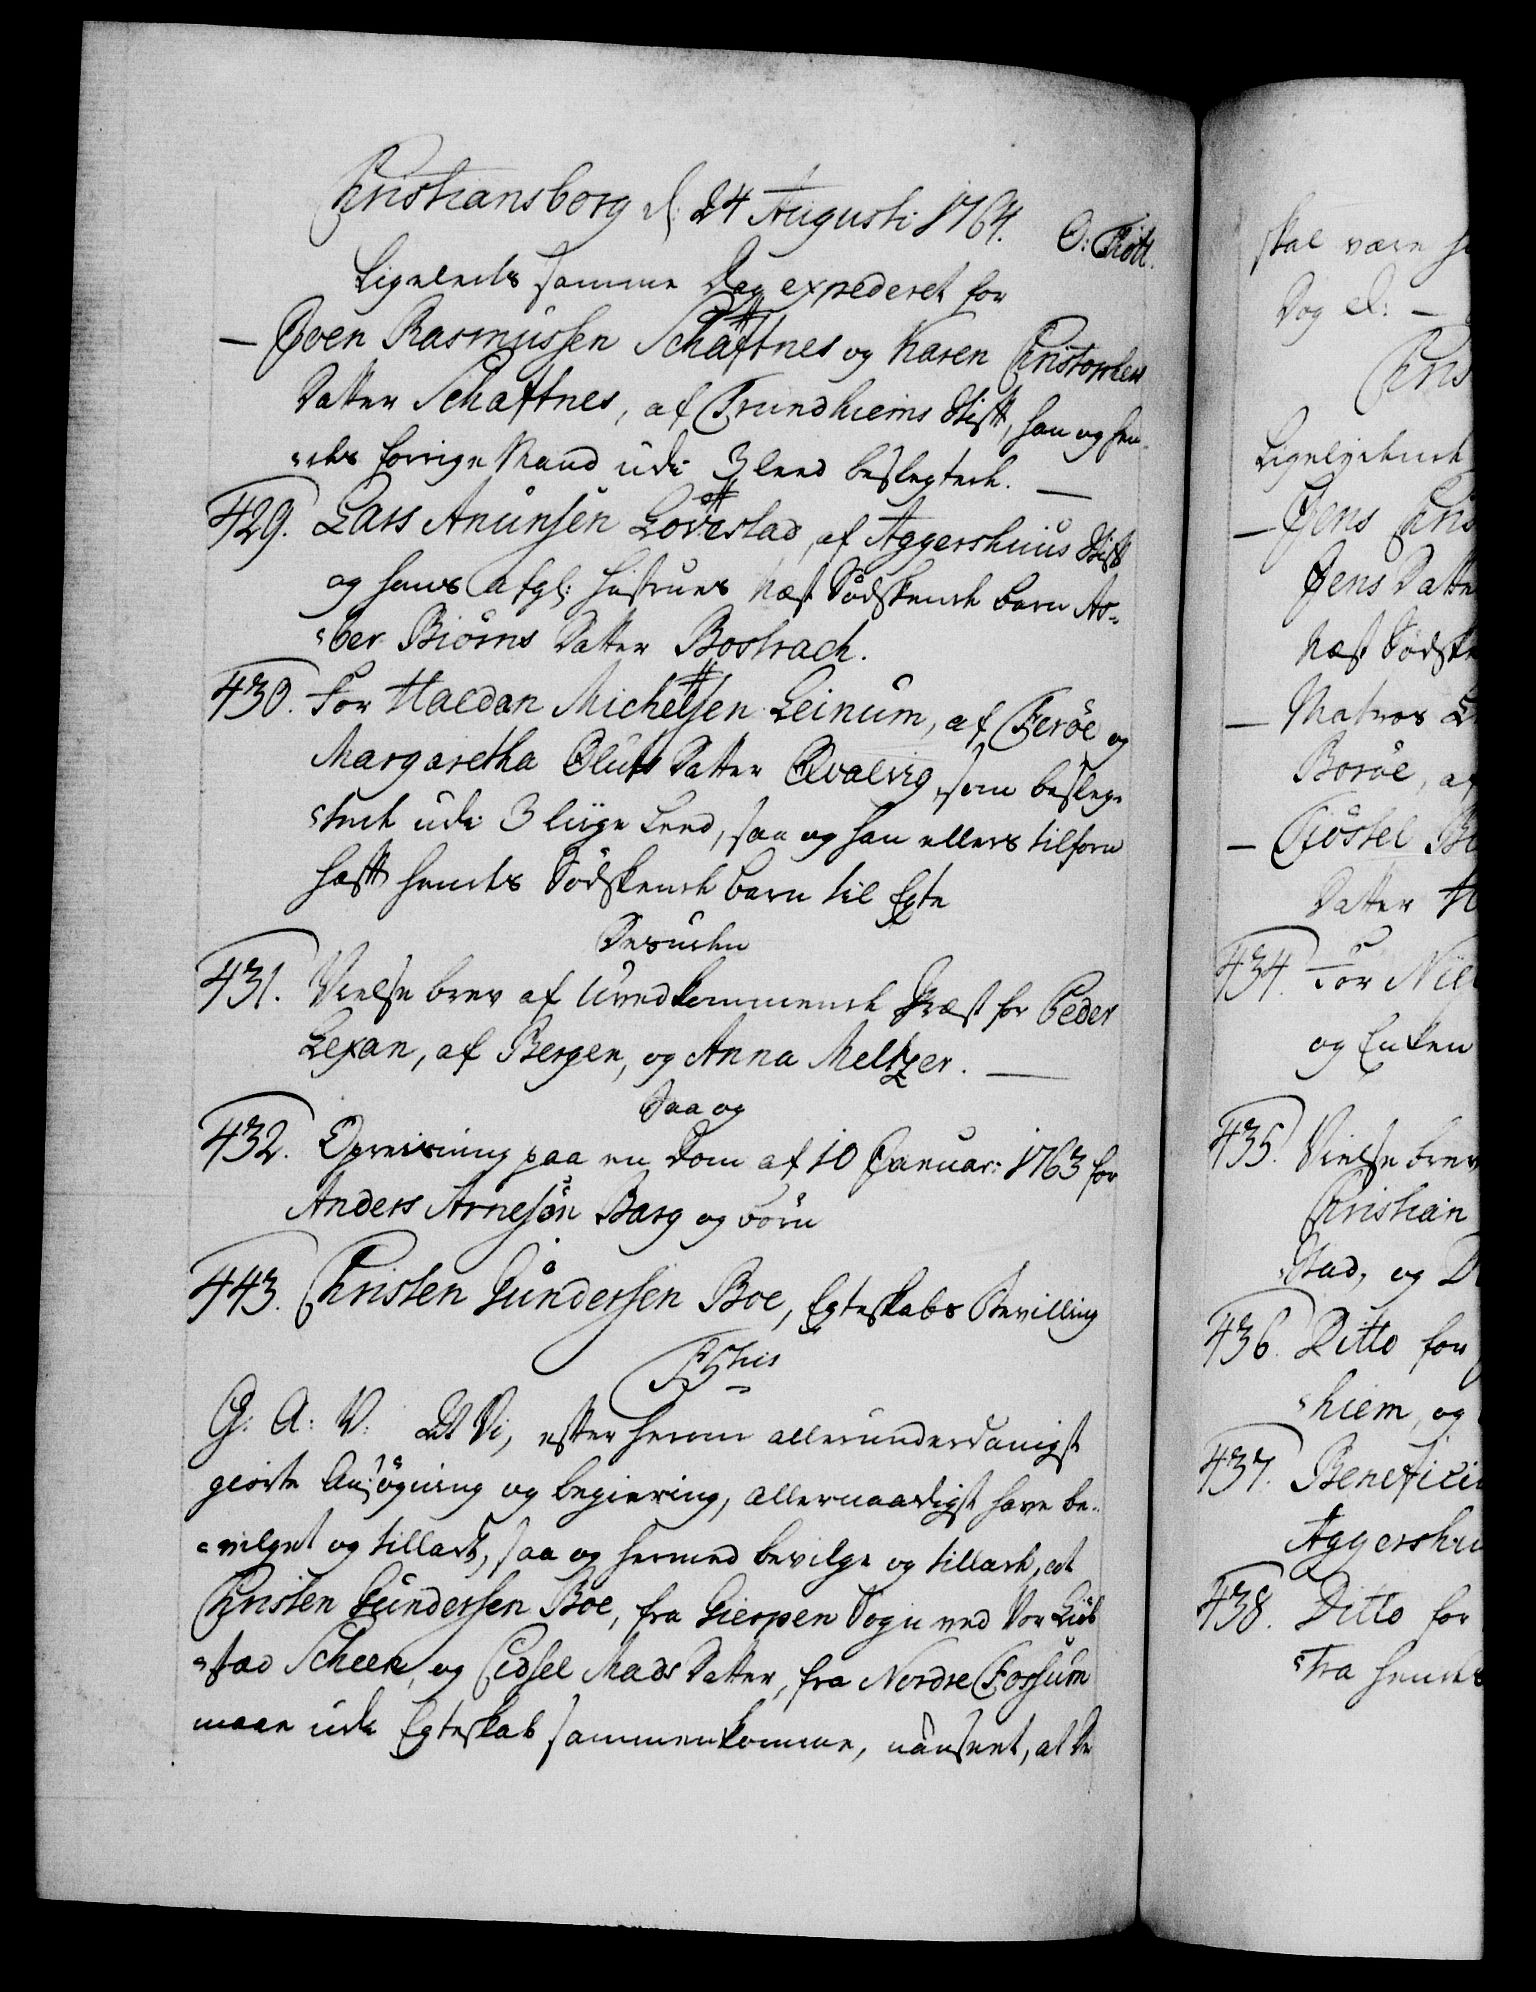 Christiansborg d: 24 Augusti 1764.
O: Thott.
Ligeleeds samme Dag expederet for
— Iven Rasmussen Schaftnes og Karen Christophers
Datter Schaftnes, af Trundhiems Stift, han og hen-
-des forrige Mand udi 3 leed beslegtede. —
429. Lars Amunsen Lövestad, af Aggershuus Stift
og hans afgl: Hustrues Næst Södskende barn As-
-ber Biörns Datter Bostrach.
430. For Haldan Michelsen Leinum, af Færöe og
Margaretha Olufs Datter Qvalvig, som beslege
-tede udi 3 liige Leed, saa og han ellers tilforn
haft hendes Södskende barn til Egte
Desuden
431. Vielse brev af Uvedkommende Præst for Peder
Lexan, af Bergen, og Anna Meltzer. —
Saa og
432. Opreisning paa en Dom af 10 Januar: 1763 for
Anders Arnesön Barg og börn
443. Christen Gundersen Boe, Egteskabs Bevilling
F5tus
G: A: V: At Vi, efter herom allerunderdanigst
giorte Ansögning og begiering, allernaadigst have be-
-vilget og tilladt, saa og hermed bevilge og tillade, at
Christen Gundersen Boe, fra Gierpen Sogn ved Vor Kiöb
-stad Scheen, og Cidsel Mads Datter, fra Nordre Fossum
maae udi Egteskab sammenkomme, uanseet, at De
skal være
Dog &:
Chris
Ligelydende
— Jens Chris
Jens Datte
Næst Södske
— Matros
Boröe, af
— Kiöstel
Datter
434. For Niel
og Enken
435. Vielse brev
Christian
-stad, og
436. Ditto for
-hiem, og
437. Benefici
Aggershu
438. Ditto for
-fra hendes